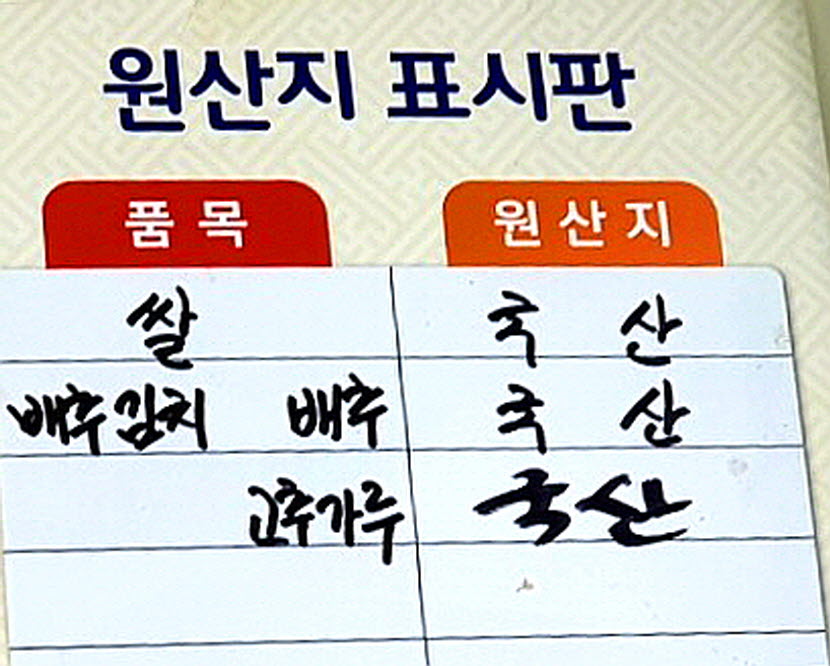 원산지 표시판
품목 원산지
쌀 국 산
배추김치 배추 국 산
고추가루 국산